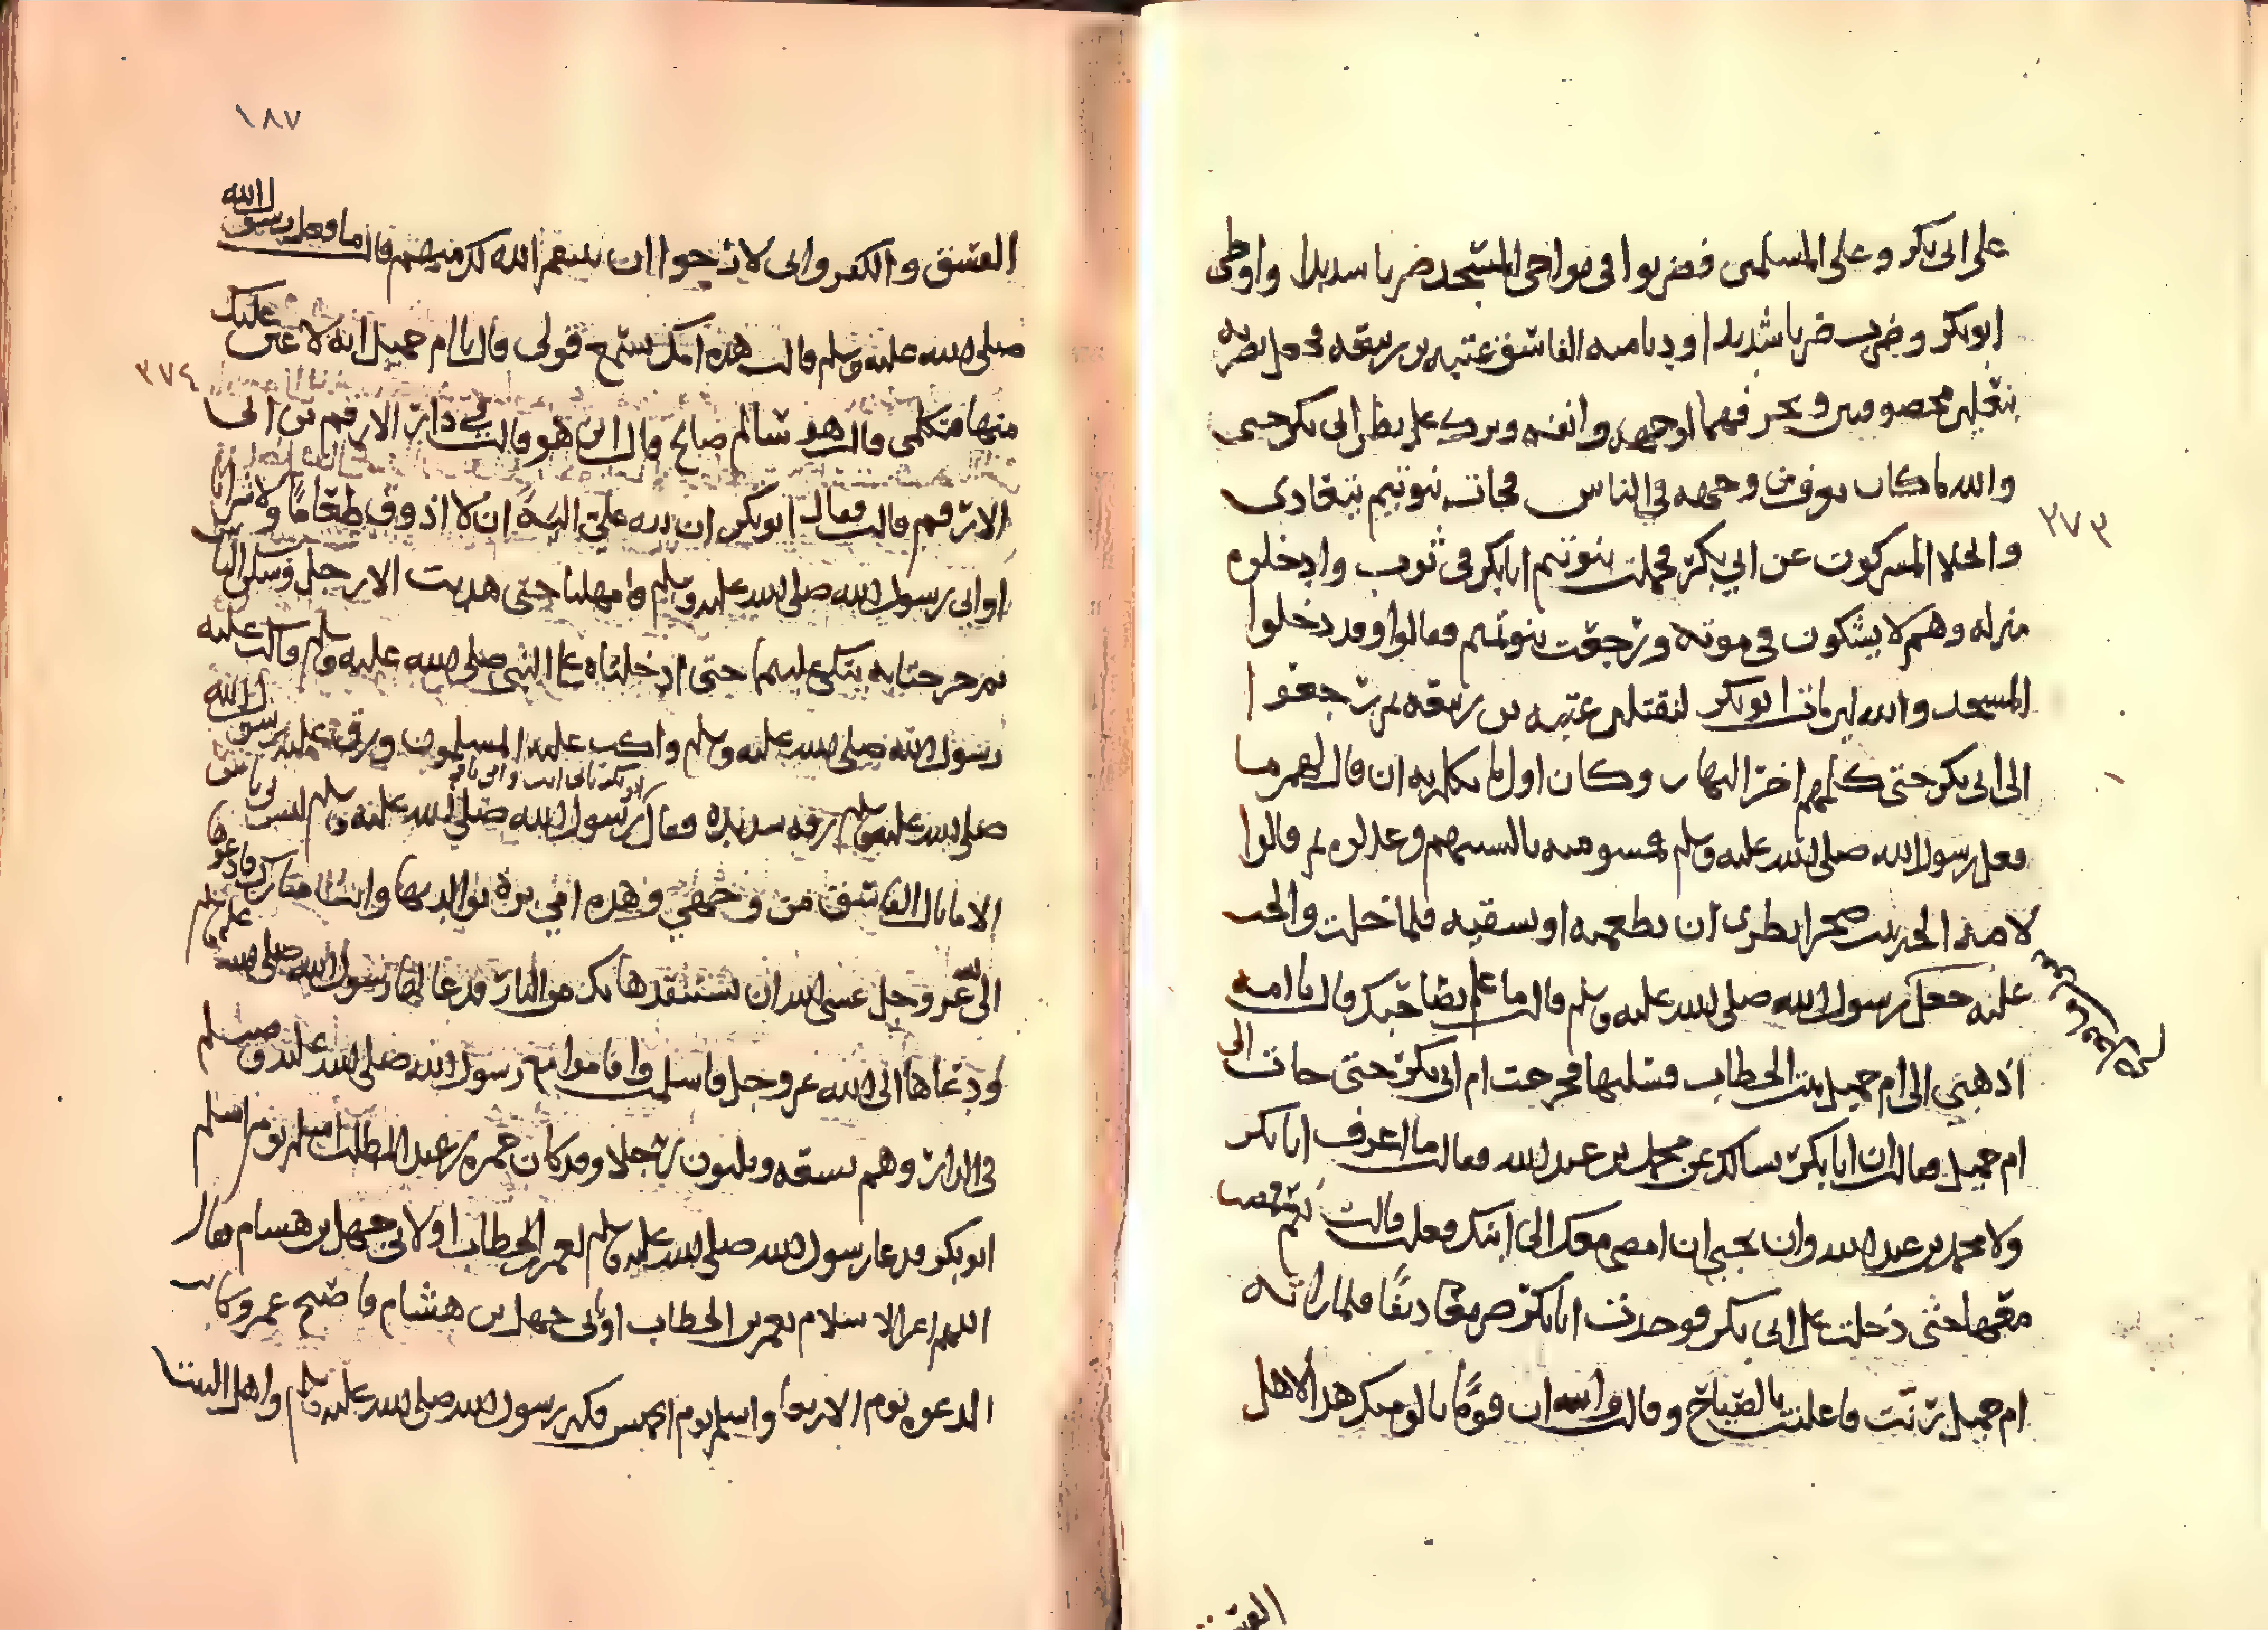 على ابى بكر وعلى المسلمين فضربوا فى نواحى المسجد ضربا شديدا واوطى
ابو بكر وضرب ضربا شديدا ودنا منه الفاسق عتبه بن ربيعه فجعل يضربه
بنعلين مخصوفين ويحرفهما لوجهه وانفه وبرك على بطن ابى بكر حتى
والله ما كاد يعرف من وجهه فى الناس فجات بنو تيم تتعادى
٣٧٣
واجلا المشركون عن ابي بكر فحملت بنو تيم ابا بكر فى ثوب وادخلوه
منزله وهم لا يشكون فى موته ورجعت بنو تيم فقالوا وقد دخلوا
المسجد والله لين مات ابو بكر لنقتلن عتبه بن ربيعه ثم رجعوا
الى ابى بكر حتى كلمهم اخر النهار وكان اول ما تكلم به ان قال لهم ما
فعل رسول الله صلى الله عليه وسلم فمسوا منه بالسنتهم وعدلوه ثم قالوا
لامه ام الخير بنت صخر انظرى ان تطعميه او تسقيه فلما خلت والحت
عليه جعل رسول الله صلى الله عليه وسلم قالت ما علم بصاحبك قال يا امه
اذهبي الى ام جميل بنت الخطاب فسليها فخرجت ام ابى بكر حتى جات الى
ام جميل فقالت ان ابا بكر يسالك عن محمد بن عبد الله فقالت ما اعرف ابا بكر
ولا محمد بن عبد الله وان تحبي ان امضى معك الى ابنك فعلت قالت نعم فمضت
معها حتى دخلت على ابى بكر فوجدت ابا بكر صريعا دنفا فلما راته
ام جميل رنت فاعلنت بالصياح وقالت والله ان قوما نالوا منك هذا لاهل
الفسق
١٨٧
الفسق والكفر وانى لارجوا ان ينتقم الله لك منهم قال ما فعل رسول الله
صلى الله عليه وسلم قالت هذه امك تسمع قولى قال يا ام جميل انه لا عين عليك
٣٧٤
منها فتكلمى قالت هو سالم صالح قال اين هو قالت في دار الارقم بن ابى
الارقم قالت فقال ابو بكر ان لله علي اليه ان لا اذوق طعاما ولا شرابا
او اتى رسول الله صلى الله عليه وسلم فامهلنا حتى هدت الارجل وسكن الناس
ثم خرجتا به يتكئ عليهما حتى ادخلتاه على النبى صلى الله عليه وسلم قالت فاكب عليه
رسول الله صلى الله عليه وسلم واكب عليه المسلمون ورق عليه رسول الله
صلى الله عليه وسلم رقه شديده فقال ابو بكر بابى انت وامى يا رسول الله صلى الله عليه وسلم ليس بى باس
الا ما نال الفاسق من وجهي وهذه امي بره بوالديها وانت مبارك فادعوها
الى الله عز وجل عسى الله ان يستنقذها بك من النار فدعا لها رسول الله صلى الله عليه وسلم
ودعاها الى الله عز وجل فاسلمت واقاموا مع رسول الله صلى الله عليه وسلم
فى الدار وهم تسعه وثلثون رجلا وقد كان حمزه بن عبد المطلب اسلم يوم اسلم
ابو بكر فدعا رسول الله صلى الله عليه وسلم لعمر بن الخطاب او لابي جهل بن هشام فقال
اللهم اعز الاسلام بعمر بن الخطاب او بابى جهل بن هشام فاصبح عمر وكانت
الدعوه يوم الاربعا واسلم يوم الخميس فكبر رسول الله صلى الله عليه وسلم واهل البيت